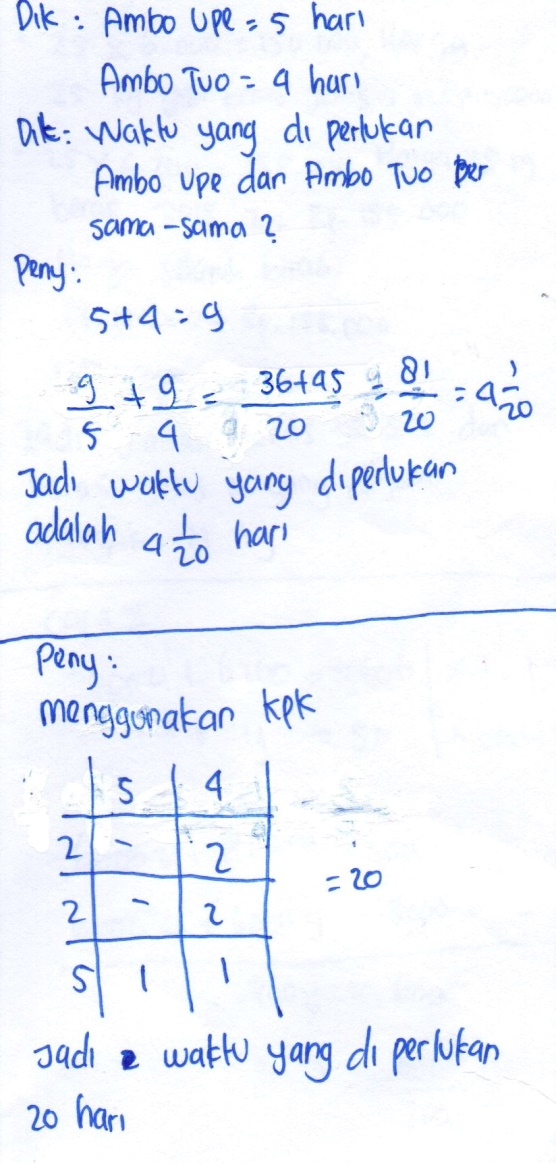 Dik : Ambo Upe = 5 hari
Ambo Tuo = 4 hari
Dit : Waktu yang di perlukan
Ambo Upe dan Ambo Tuo ber
sama-sama ?
Peny :
5+4 = 9
9/5 + 9/4 = 36+45/20 = 81/20 = 4 1/20
Jadi waktu yang diperlukan
adalah 4 1/20 hari
Peny :
menggunakan KPK
5 4
2 - 2
2 - 2
= 20
5 1 1
Jadi waktu yang di perlukan
20 hari